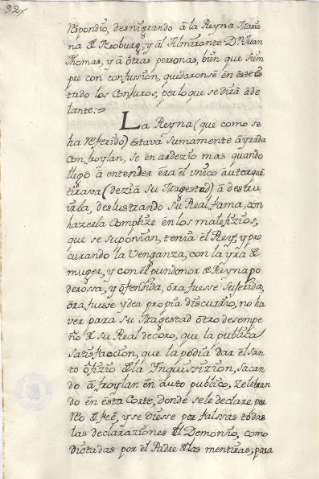 32
spondio, desnigrando à la Reyna Maria
na de Neoburg, y al Almirante Dn Juan
Thomas, y à otras personas, bien que siem
pre con confusion, quedaronse en este es
tado los Conjuros, por lo que se dirà ade
lante.
La Reyna (que como se
ha referido) estava sumamente ayrada
con froylan, se enardezio mas quando
llegò à entender èra èl unico autor que
tirava (dezia Su Magestad) à destru
irla, deslustrando su Real fama, con
hazerla Complize en los malefizios,
que se suponian, tenia èl Rey, y pro
curando la Venganza, con la yra de
muger, y con èl pundonor de Reyna po
derossa, y ofendida, òra fuesse sujerida,
òra fuesse ydea propia discurrio, no ha
ver para su Magestad òtro desempe
ño de su Real decoro, que la publica
satisfaccion, que la podia dar el San
to ofizio de la Inquissizion, sacan
do à froylan en auto publico, Zelebran
do en esta Corte, donde se le declare por
Reo de feè, y se diesse por falssas todas
las declaraziones del Demonio, como
dictadas por el Padre de las mentiras, para